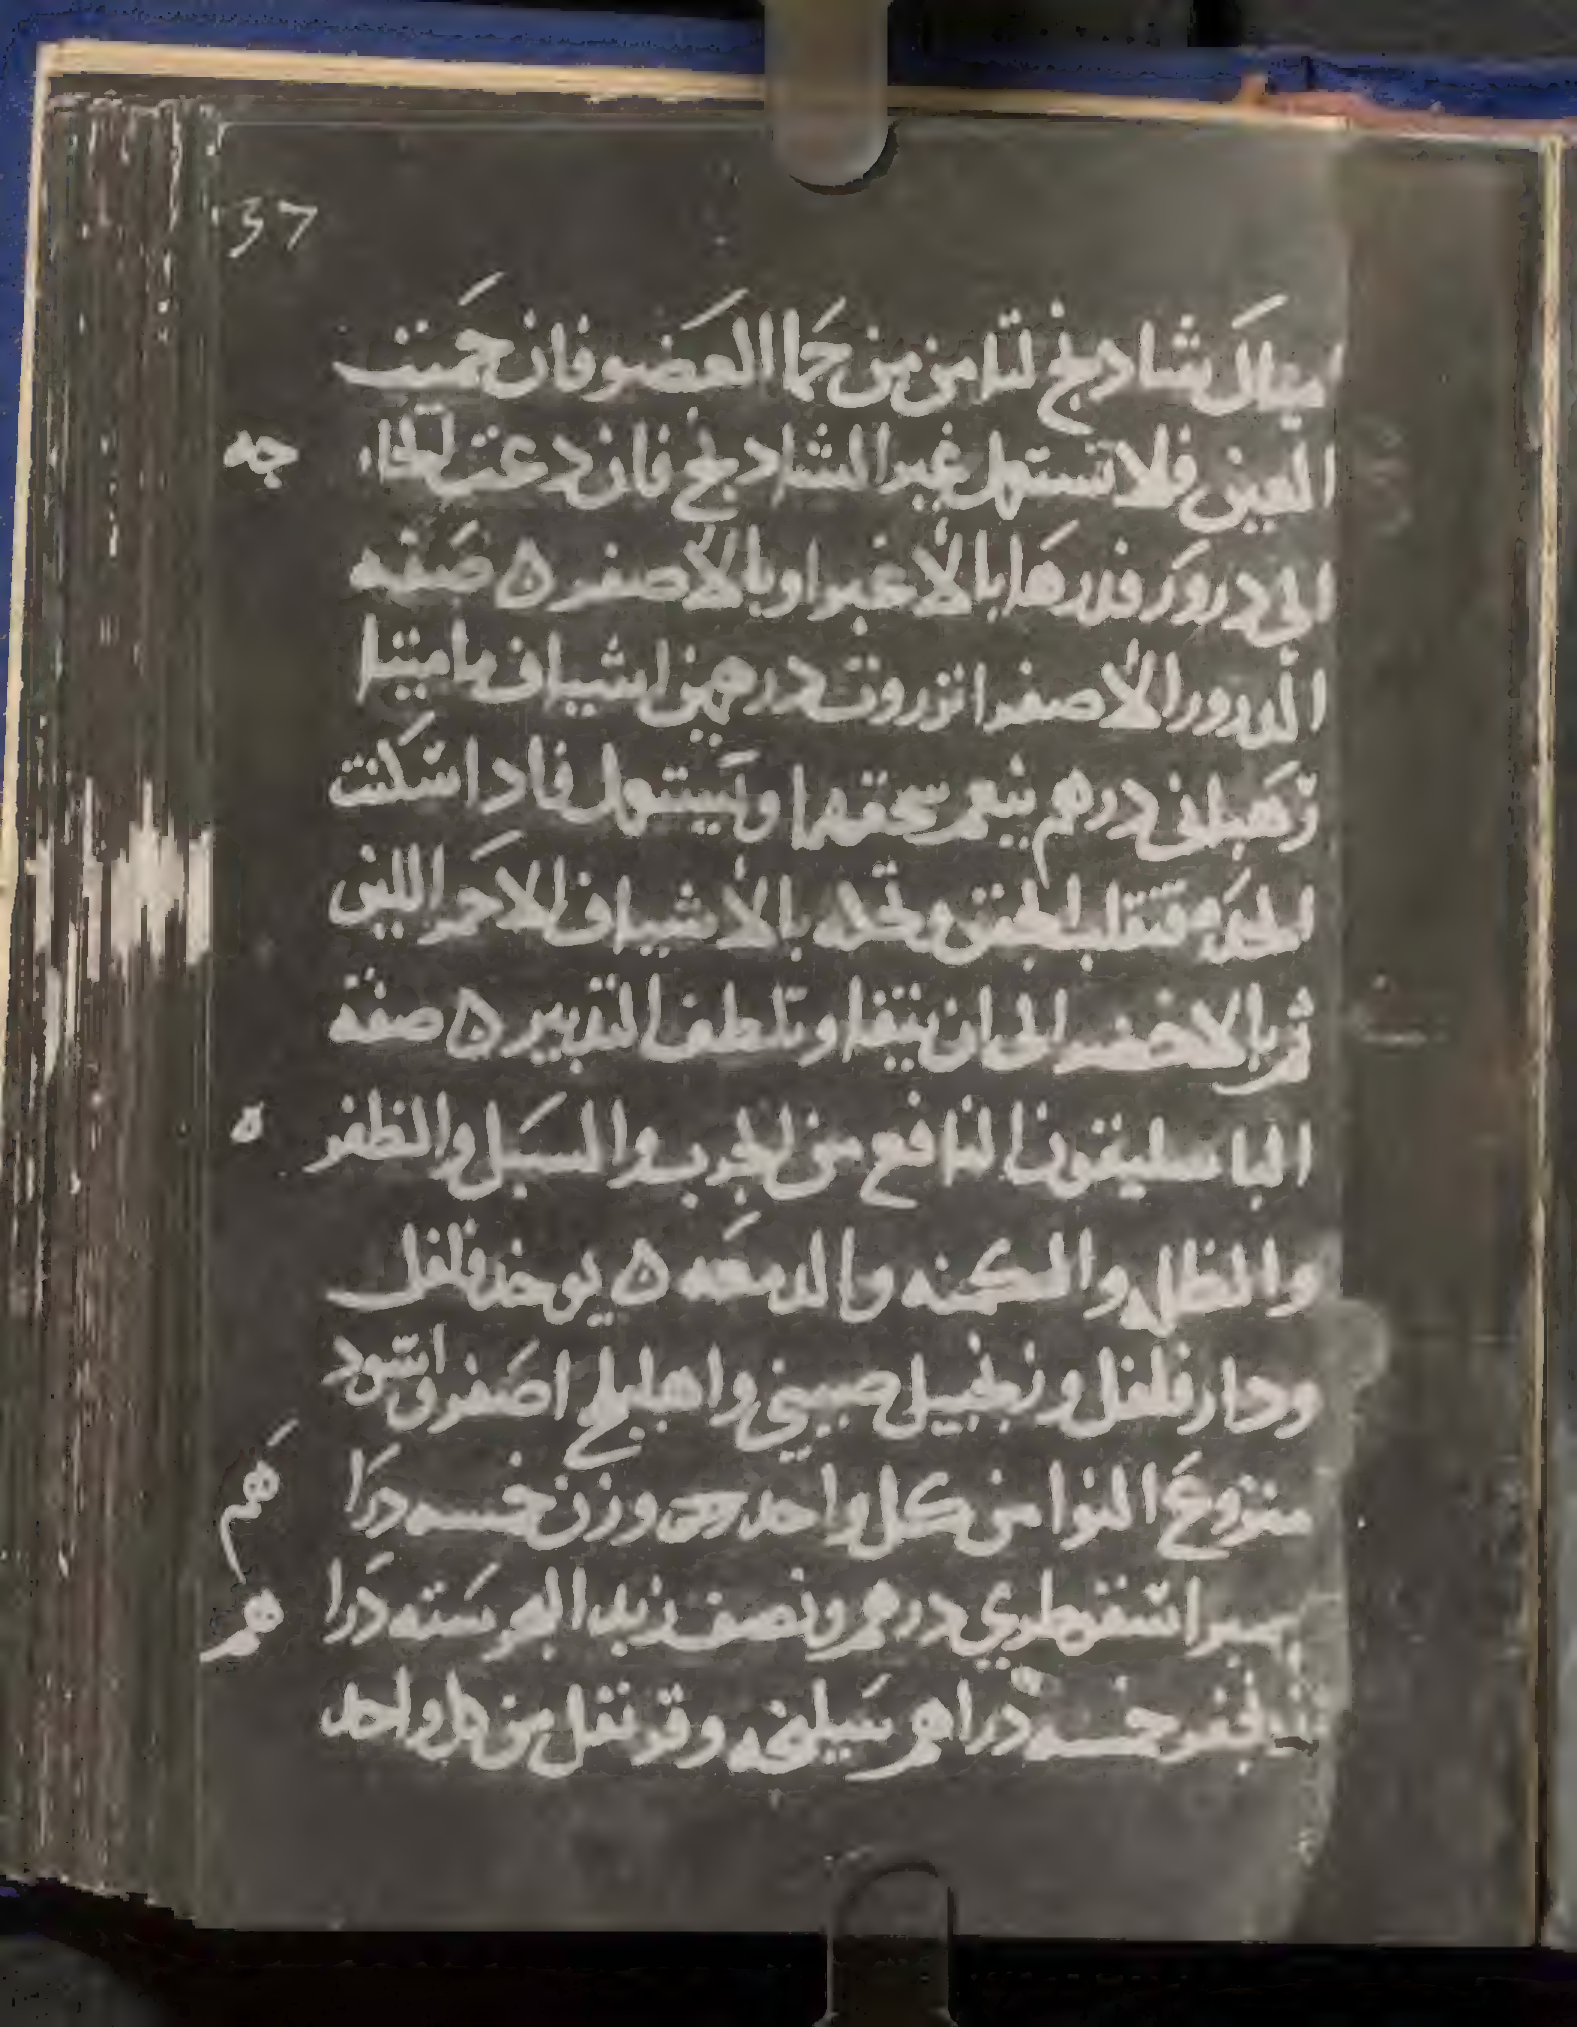 37
اميال شادنج لتامن من حما العضو فان حميت
العين فلا تستعمل غير الشادنج فان دعت الحا جه
الى درور فدرها بالأغبر او بالأصفر ه صفه
الدرور الأصفر انزروت درهمين اشياف ماميثا
درهم ينعم سحقهما ويستعمل فادا سكنت
فتقلب الجفن وتحكه بالأشياف الاحمر اللين
ثم بالاخضر الى ان ينقا وتلطف التدبير ه صفة
الباسليقون النافع من الجرب والسبل والظفره
والظلمه والكمنه والدمعه ه يوخد فلفل
ودار فلفل وزنجبيل صيني واهليلج اصفر واسود
منزوع النوا من كل واحد وزن خمسه درا هم
صبر اسقطري درهم ونصف زبد البحر سته درا هم
خمسه دراهم سليخه وقرنفل من كل واحد